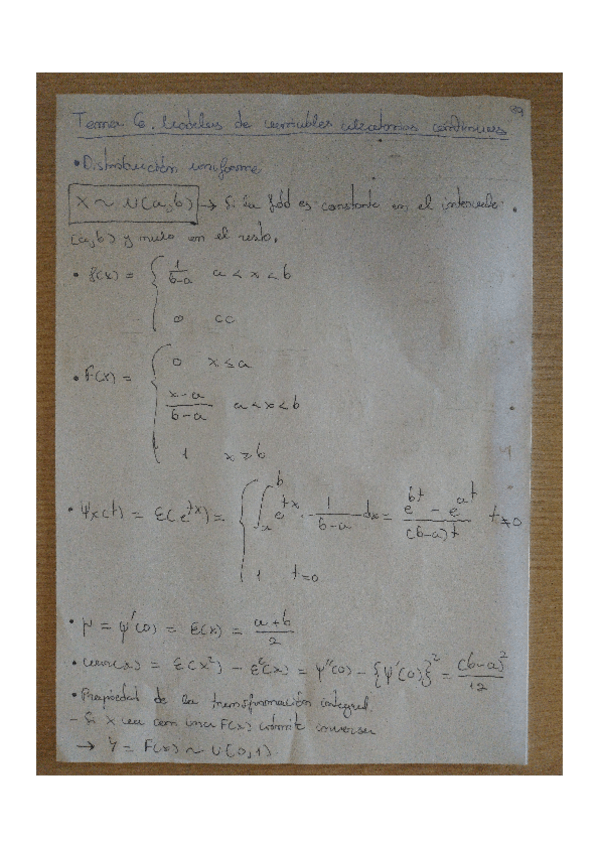 39
Tema 6. Modelos de variables aleatorias continuas
• Distribución uniforme
X ~ U(a,b) → Si la fdd es constante en el intervalo
(a,b) y nulo en el resto.
• f(x) = { 1/(b-a) a < x < b
0 cc
• F(x) = { 0 x ≤ a
(x-a)/(b-a) a < x < b
1 x ≥ b
• Ψx(t) = E(e^tx) = { ∫_a^b e^tx · 1/(b-a) dx = (e^bt - e^at)/((b-a)t) t≠0
1 t=0
• μ = Ψ'(0) = E(x) = (a+b)/2
• var(x) = E(x²) - E²(x) = Ψ''(0) - {Ψ'(0)}² = (b-a)²/12
• Propiedad de la transformación integral.
- Si X vea con una F(x) admite inversa
→ Y = F(x) ~ U(0,1)